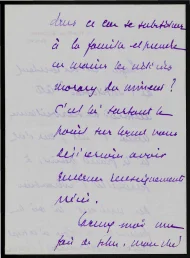 dans ce cas se substituer
à la famille et prendre
en mains les intérêts
moraux du mineur ?
C'est là surtout le
point sur lequel nous
désirerions avoir
quelques renseignements
précis.
Excusez moi une
fois de plus, mon cher